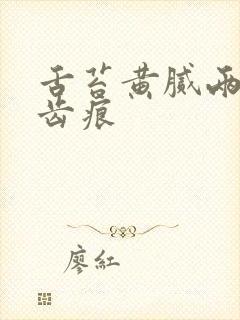 舌苔黄腻两
齿痕
廖红